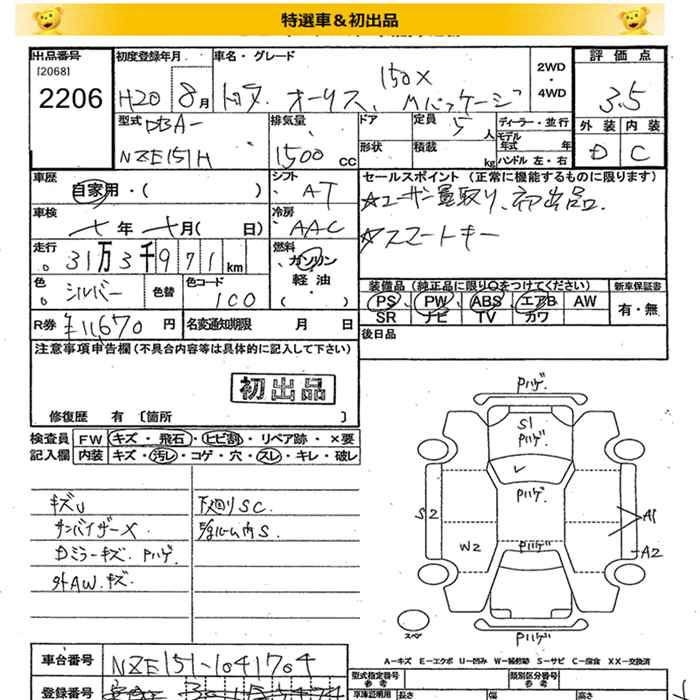 特選車＆初出品
出品番号 初度登録年月 車名・グレード 2WD・4WD 評価点
[2068] 150X
2206 H20 8月 トヨタ オーリス、Mパッケージ 3.5
型式 DBA- 排気量 ドア 定員 5人 ディーラー・並行 外装 内装
NZE151H 1500cc 形状 積載 kg モデル年式 年 D C
ハンドル 左・右
車歴 自家用・( ) シフト AT セールスポイント (正常に機能するものに限ります)
☆ユーザー買取り、初出品。
車検 年 月( 日) 冷房 AAC ☆スマートキー
走行 31万3千971km 燃料 ガソリン・軽油・( )
色 シルバー 色替 色コード 1C0 装備品 (純正品に限り○をつけてください) 新車保証書
PS PW ABS エアB AW 有・無
SR ナビ TV カワ
R券 ¥11,670円 名変通知期限 月 日 後日品
注意事項申告欄 (不具合内容等は具体的に記入して下さい)
初出品
修復歴 有 [箇所 ]
検査員記入欄 FW キズ・飛石・ヒビ割・リペア跡・×要
内装 キズ・汚レ・コゲ・穴・スレ・キレ・破レ
Pハゲ
S1
Pハゲ
Pハゲ
キズU 下廻りSC
サンバイザーX
S2 A1
Dミラーキズ Pハゲ W2 Pハゲ A2
外AWキズ
スペア Pハゲ
A－キズ E－エクボ U－凹み W－補修跡 S－サビ C－腐食 XX－交換済
車台番号 NZE151-1041704 型式指定番号 参考 類別区分番号 参考
登録番号 車庫証明用 長さ 幅 高さ